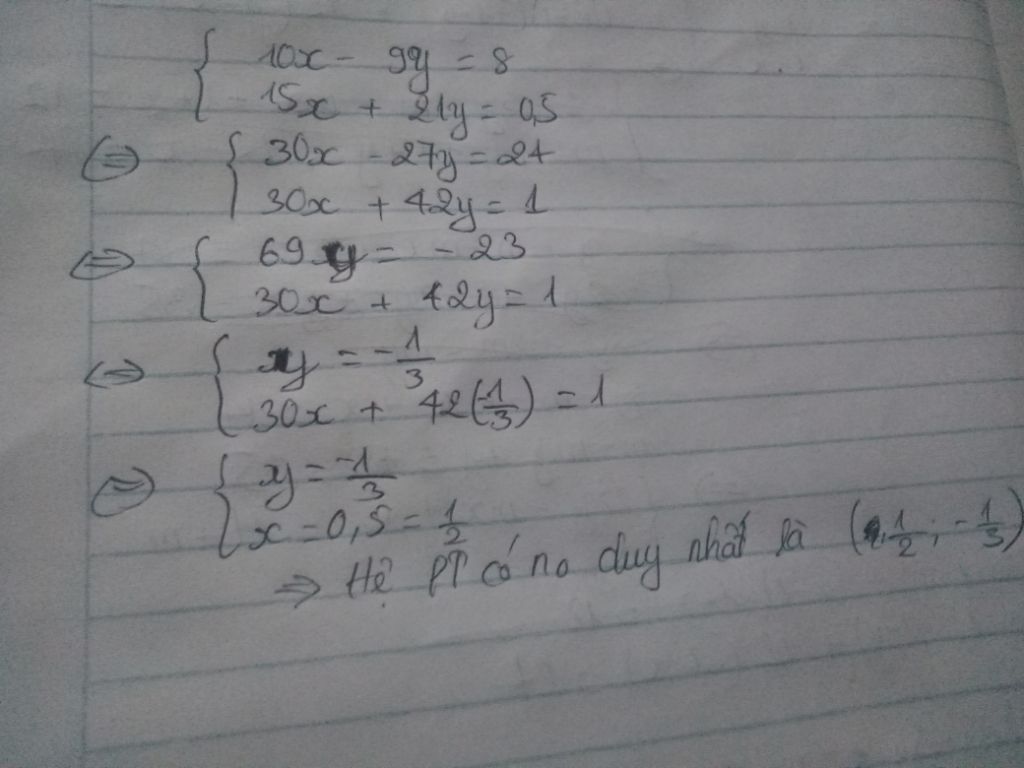 { 10x - 9y = 8
15x + 21y = 0,5
⇔ { 30x - 27y = 24
30x + 42y = 1
⇔ { 69y = - 23
30x + 42y = 1
⇔ { y = - 1/3
30x + 42(-1/3) = 1
⇔ { y = -1/3
x = 0,5 = 1/2
⇒ Hệ PT có no duy nhất là (1/2; -1/3)